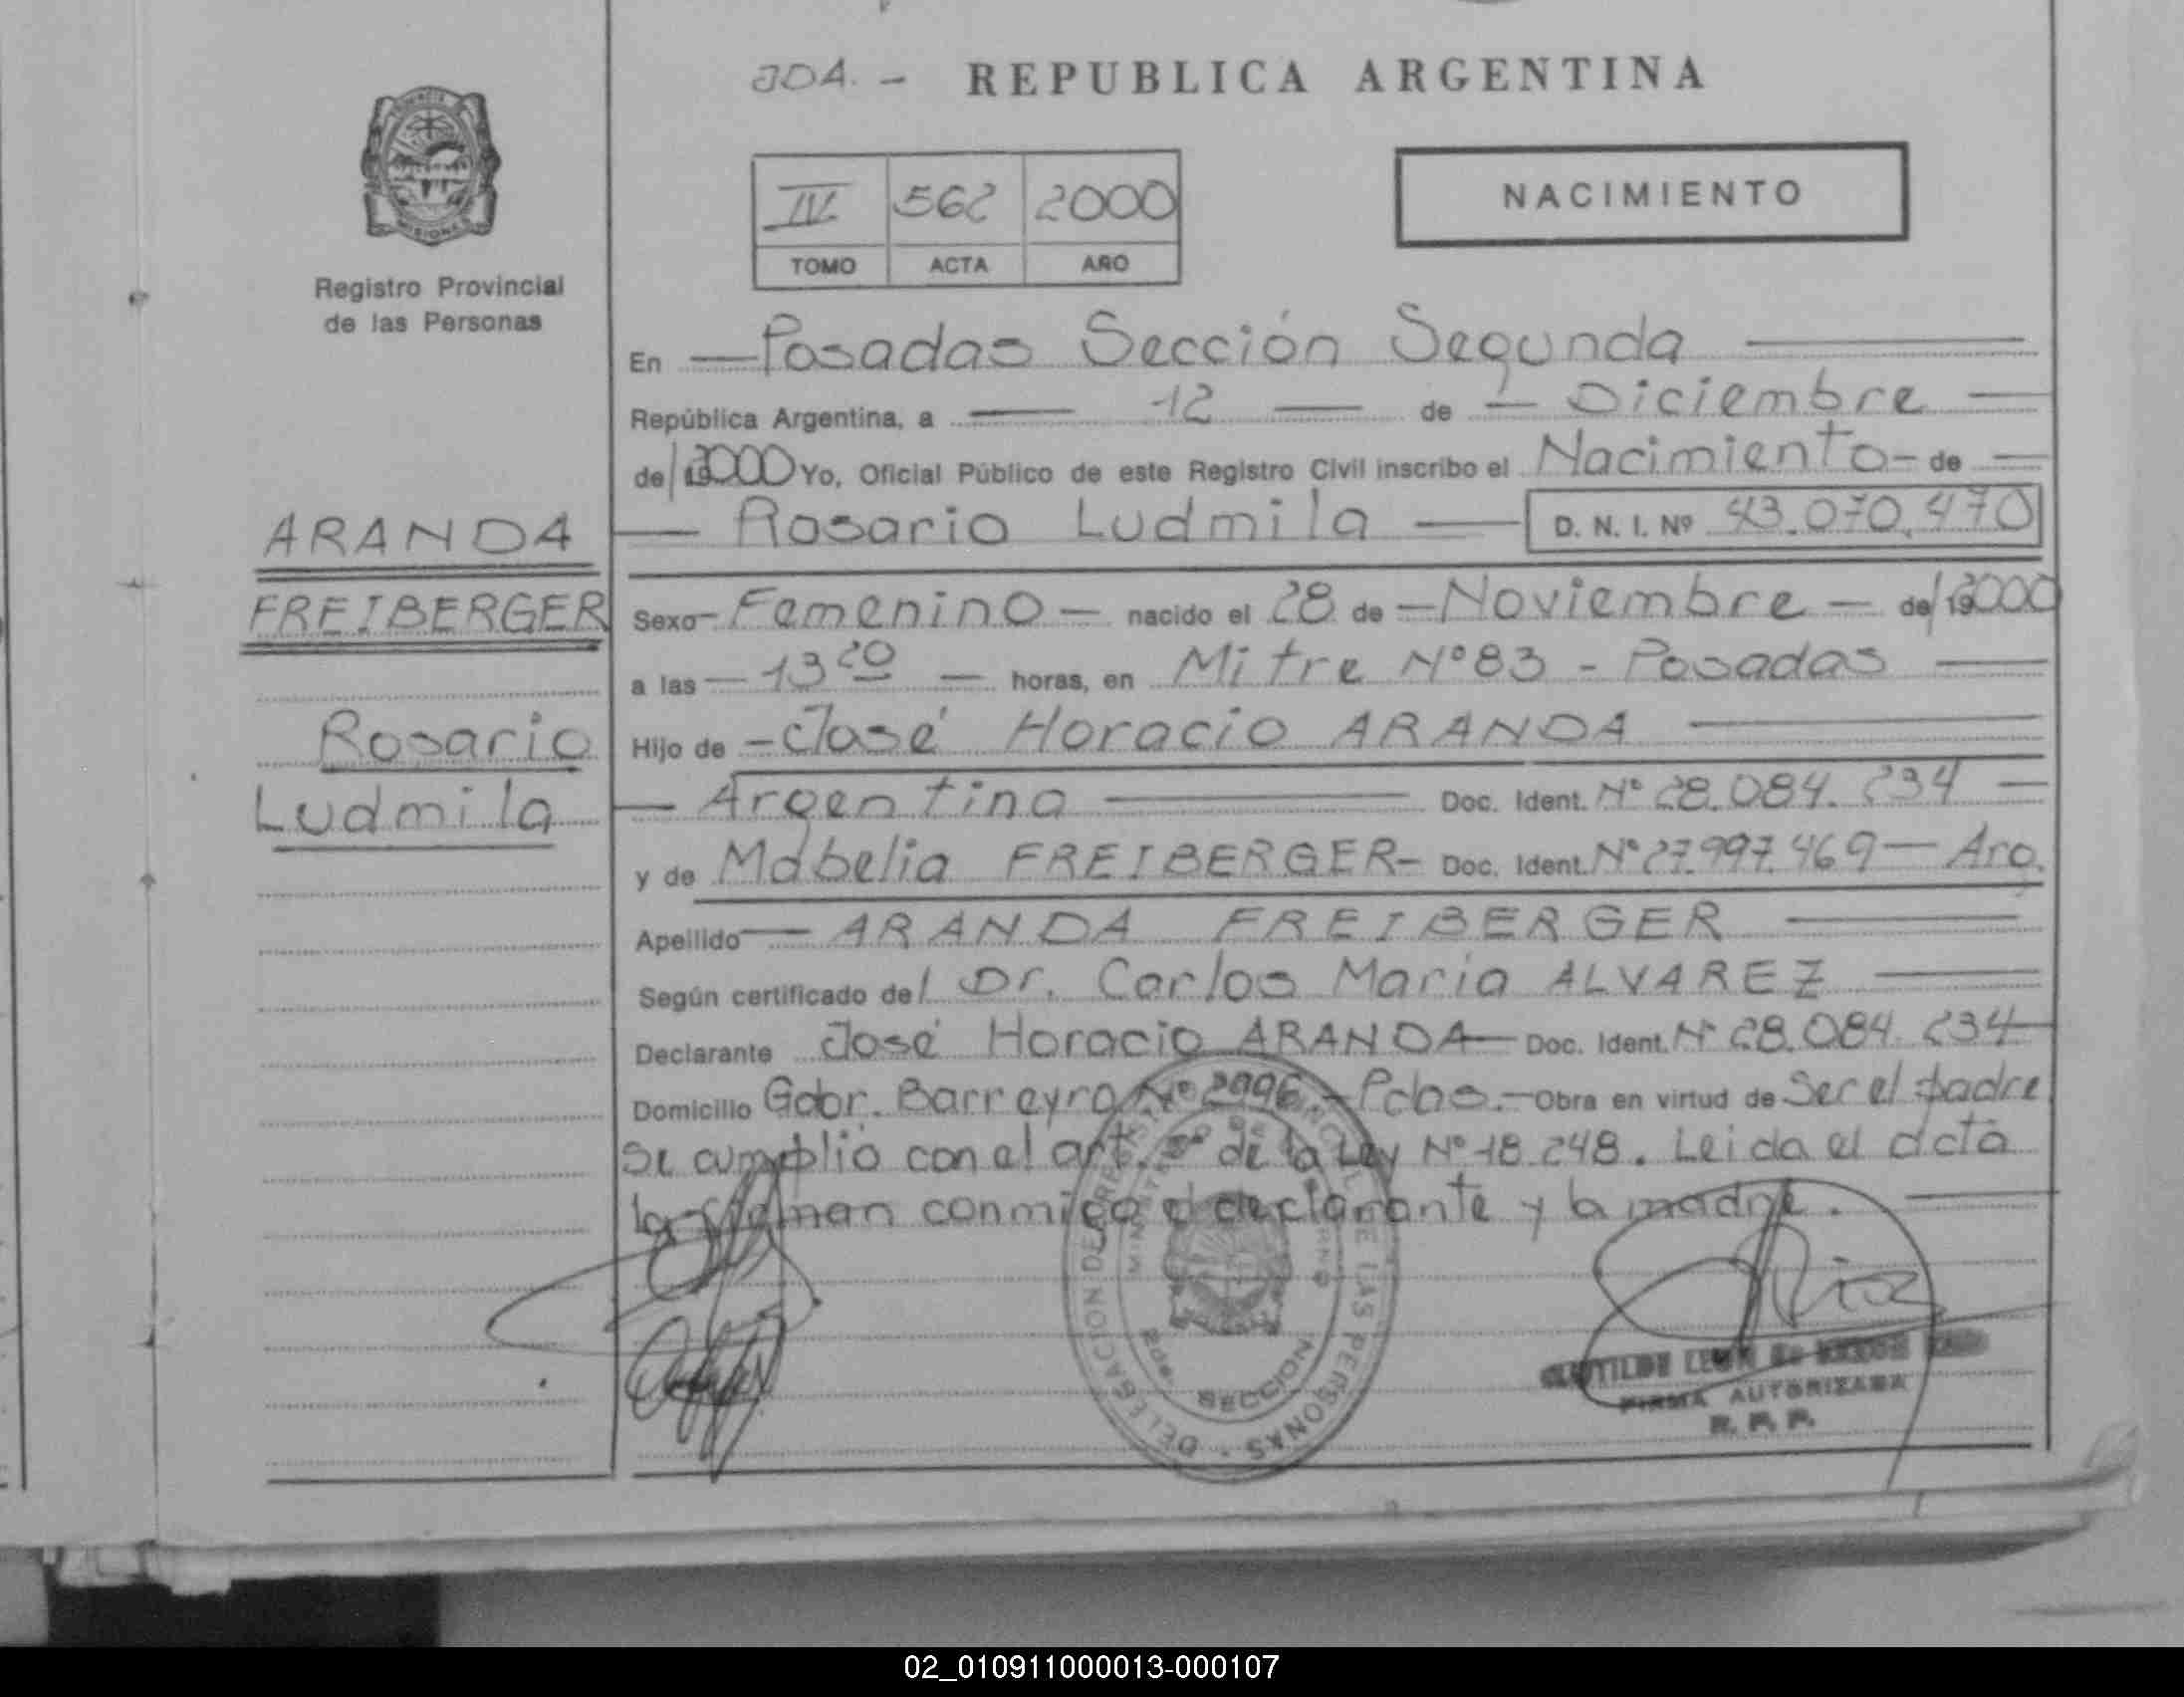 JDA. - REPUBLICA ARGENTINA
NACIMIENTO
IV 562 2000
TOMO ACTA AÑO
Registro Provincial
de las Personas
En — Posadas Sección Segunda —
República Argentina, a — 12 — de — Diciembre —
de/ 2000 Yo, Oficial Público de este Registro Civil inscribo el Nacimiento - de —
— Rosario Ludmila — D. N. I. Nº 43.070.470
ARANDA
FREIBERGER
Rosario
Ludmila
Sexo - Femenino — nacido el 28 de — Noviembre — de/ 2000
a las — 13 20 — horas, en Mitre Nº 83 - Posadas —
Hijo de - José Horacio ARANDA —
— Argentina — Doc. Ident. Nº 28.084.234 —
y de Mabelia FREIBERGER - Doc. Ident. Nº 27.997.469 — Arg.
Apellido — ARANDA FREIBERGER —
Según certificado del Dr. Carlos Maria ALVAREZ —
Declarante José Horacio ARANDA — Doc. Ident. Nº 28.084.234
Domicilio Gdor. Barreyro Nº 2996 - Pdas. - Obra en virtud de Ser el padre
Se cumplió con el art. de la Ley Nº 18.248. Leida el acta
la firman conmigo el declarante y la madre. —
DELEGACION DE REGISTRO DE LAS PERSONAS
SECCION
FIRMA AUTORIZADA
R. P. P.
02_010911000013-000107